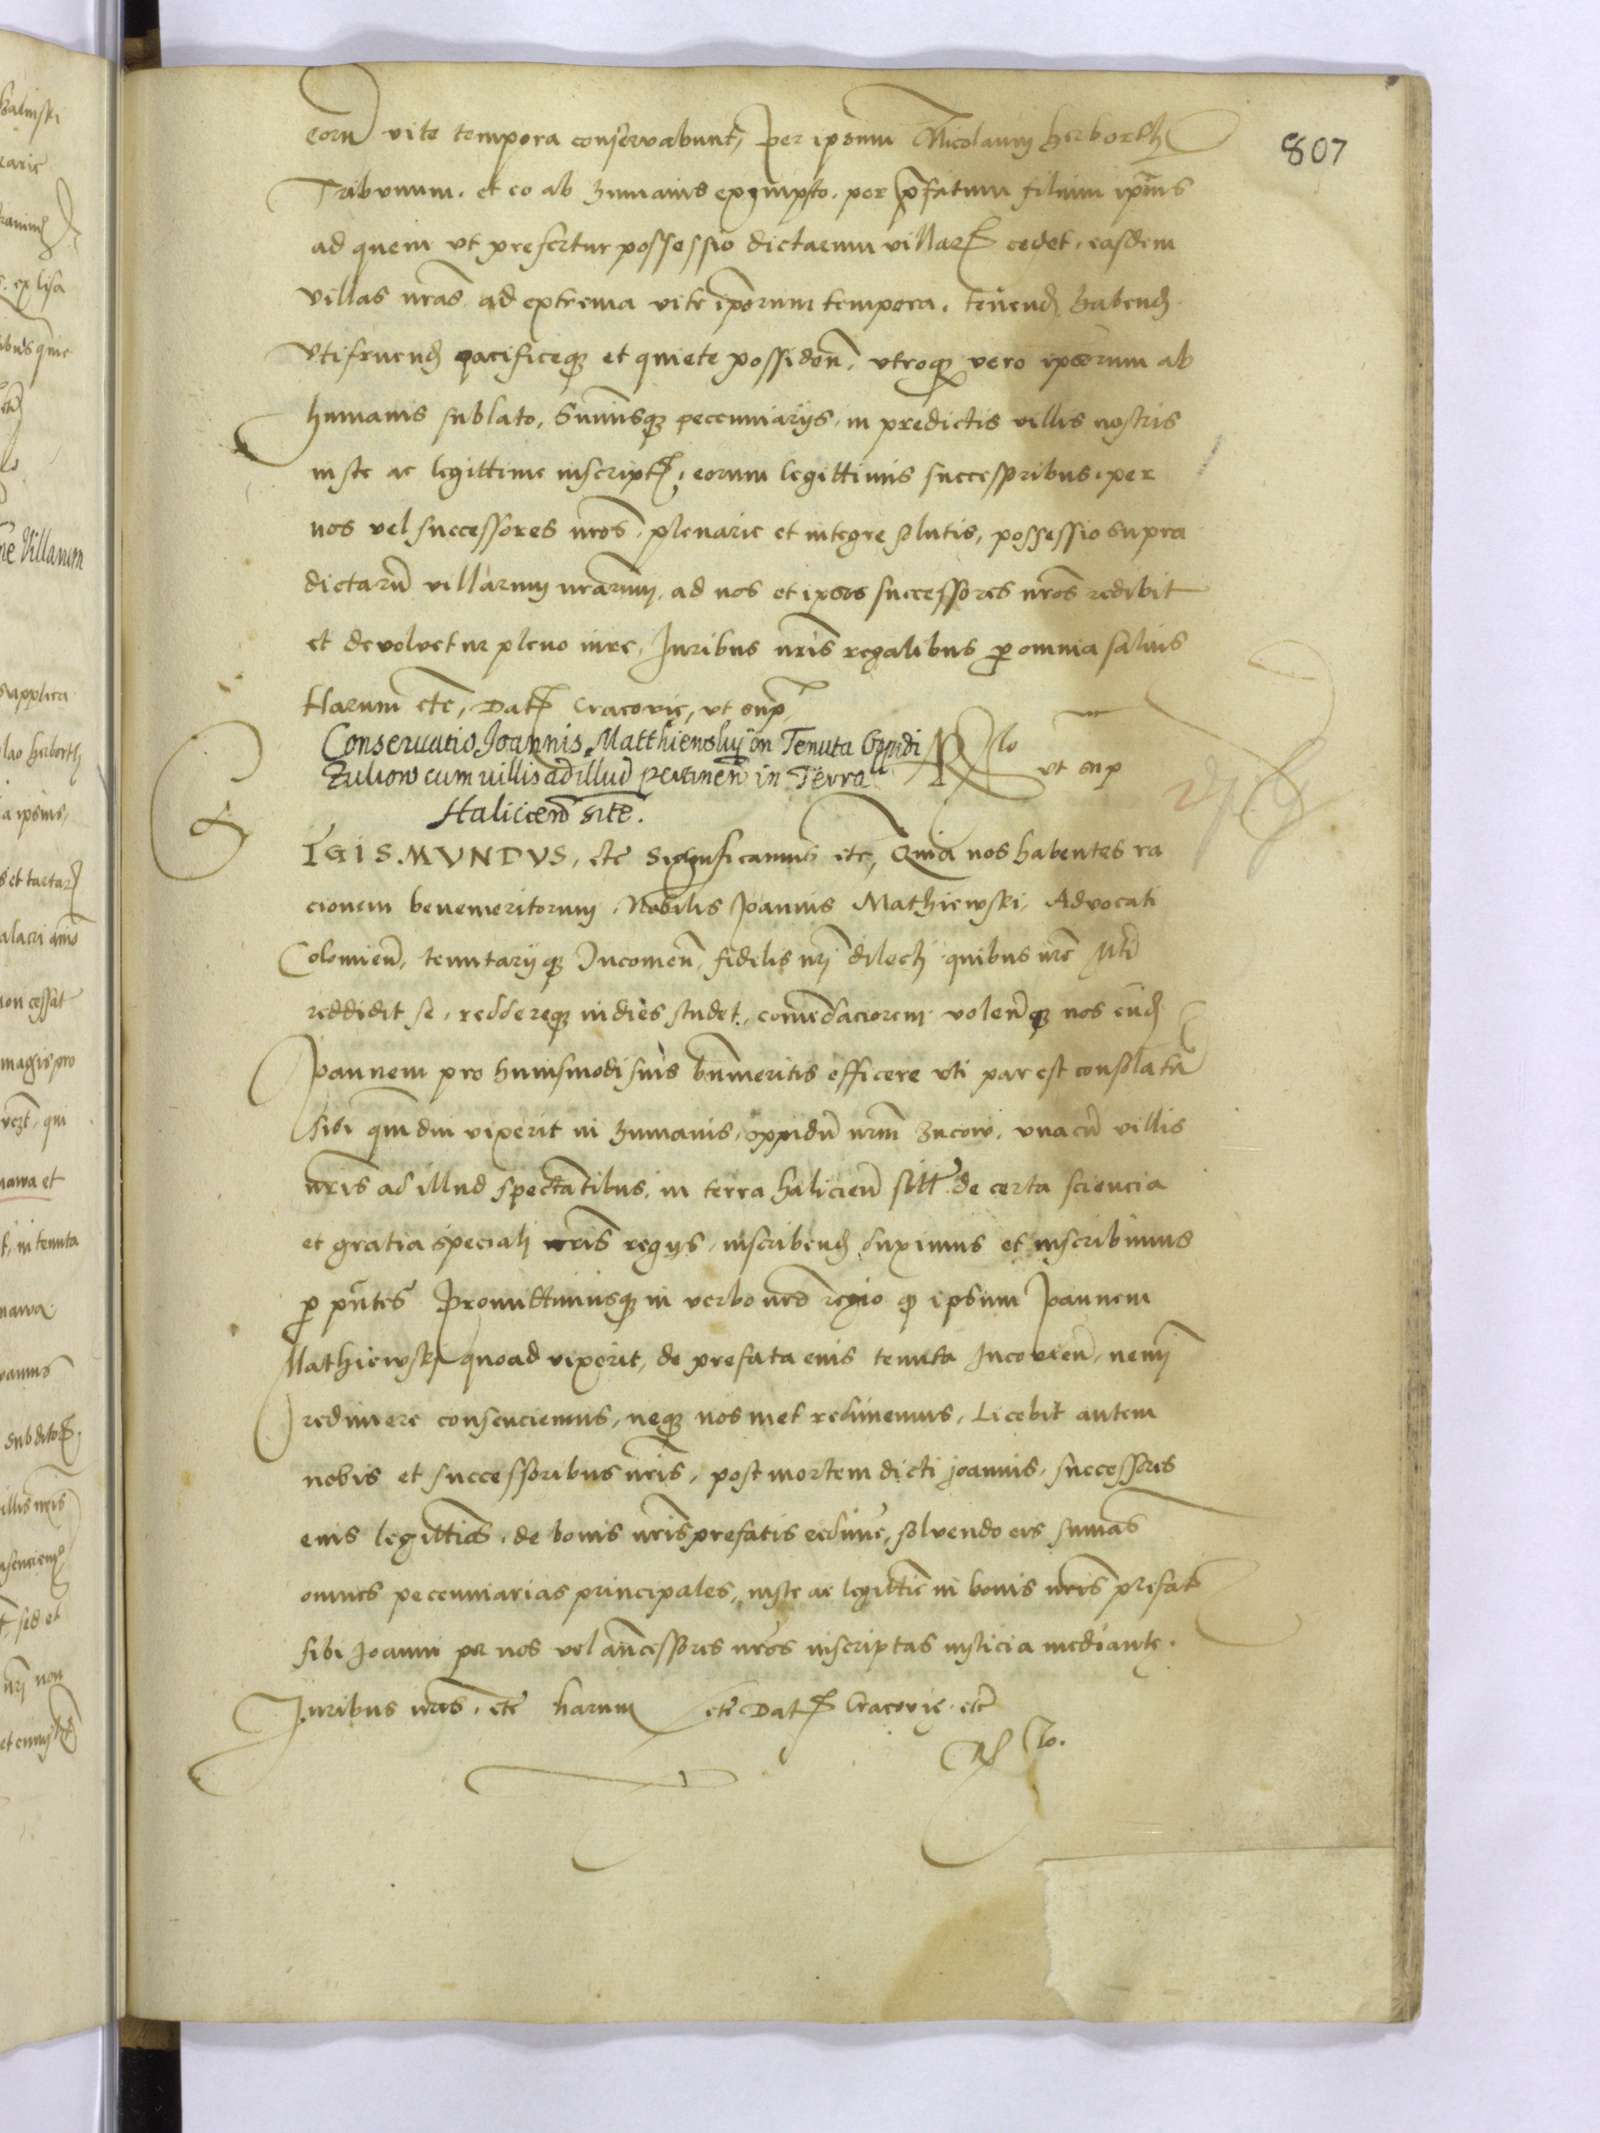 807
eorũ vite tempora conservabunt, per ipsum Nicolaum herborth
Tribunum, et eo ab humanis exempto, per p̃fatum filium ipsius
ad quem ut prefertur possessio dictarum villarꝝ cedet, easdem
villas nr̃as ad extrema vite ipsorum tempora, tenend habend
utifruend pacificeqꝫ et quiete possiden̄, utroqꝫ vero ipsorum ab
humanis sublato, Summisqꝫ pecuniarijs, in predictis villis nostris
iuste ac legittime inscriptꝭ, eorum legittimis successoribus, per
nos vel successores nr̃os, plenarie et integre solutis, possessio supra
dictarũ villarum nr̃arum, ad nos et ipsos successores nr̃os redibit
et devolvetur pleno iure, Juribus nr̃is regalibus ꝑ omnia salvis
Harum etc̃, Datꝭ Cracovie, ut sup̃
Conseruatio Joannis Matthienskij in Tenuta Oppidi
Zukow cum uillis ad illud pertinen̄ in Terra
Haliciẽn site.
ut sup
IGISMVNDVS, etc̃ Significamus etc̃, Quia nos habentes ra
cionem benemeritorum, Nobilis Joannis Mathiewski, Advocati
Colomien̄, tenutarijqꝫ Zucowien̄, fidelis nr̃i dilecti, quibus nr̃e
reddidit se, reddereqꝫ indies studet, com̃endaciorem, volen̄qꝫ nos eũd
Joannem pro huiusmodi suis bn̄meritis efficere uti par est consolatũ
sibi qm̃diu vixerit in humanis, oppidũ nr̃m Zucow, una cũ villis
nr̃is ad illud spectantibus, in terra halicien̄ de certa sciencia
et gratia speciali nr̃is regijs, inscribend duximus et inscribimus
ꝑ pn̄tes Promittimusqꝫ in verbo nr̃o regio ꝙ ipsum Joannem
Mathiewski quoad vixerit, de prefata eius tenuta Zucovien̄, nemi
redimere consenciemus, neqꝫ nosmet redimemus, Licebit autem
nobis et successoribus nr̃is, post mortem dicti Joannis, successores
eius legittios, de bonis nr̃is prefatis redimẽ, solvendo eis sum̃as
omnes pecuniarias principales, iuste ac legittiẽ in bonis nr̃is prefatꝭ
sibi Joanni per nos vel an̄cessores nr̃os inscriptas iusticia mediante.
Juribus nr̃is, etc̃ harum etc̃ Datꝭ Cracovie etc̃